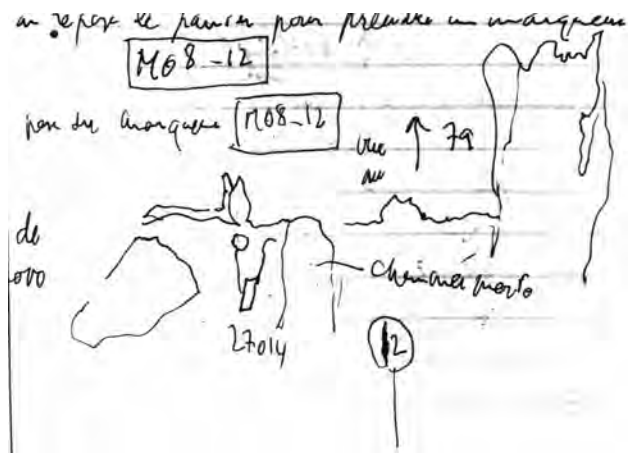 on repose le panier pour prendre un marqueur
M08-12
pose du marqueur M08-12
vue
au
↑ 79
de
cheminée morte
27014
12